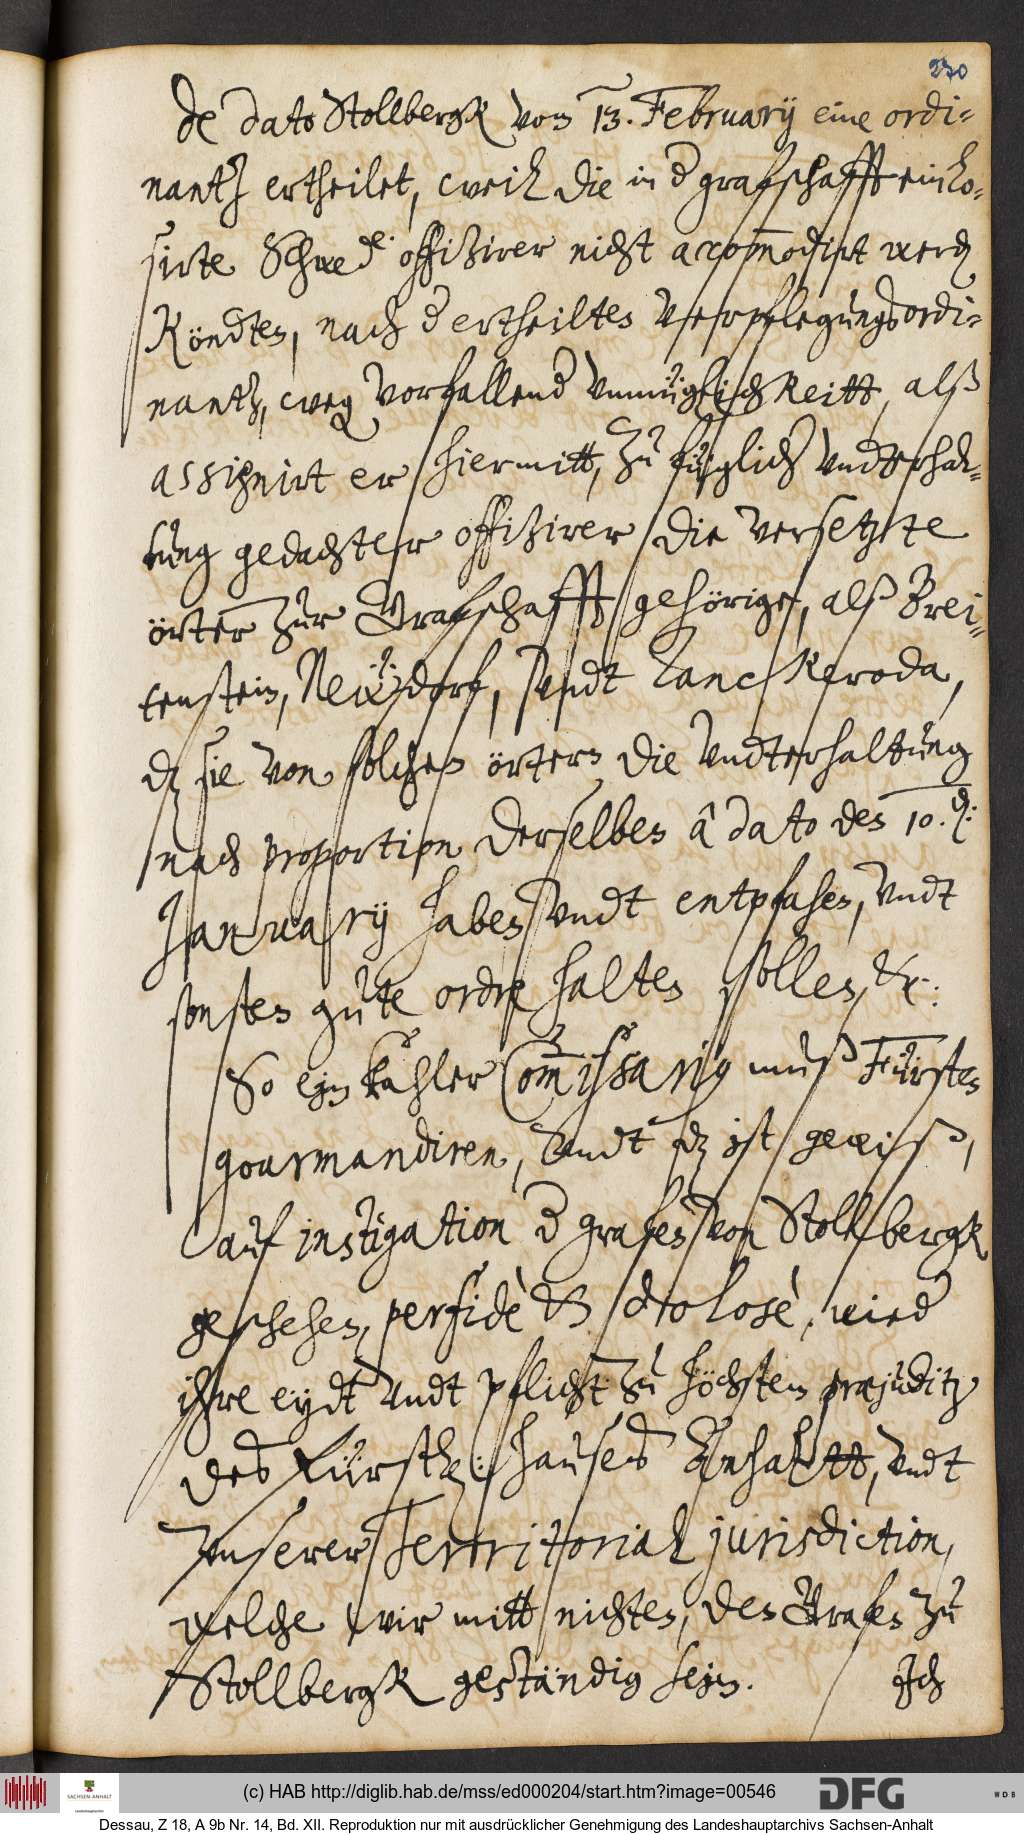 230
de dato Stollbergk vom 13. February eine ordi-
nantz ertheilet, weil die in d grafschafft einlo-
sirte Schwed: offizirer nicht accom̄odirt werden
köndten, nach d ertheilten Verpflegungsordi-
nantz, weg vorfallend vnmüglichkeitt, alß
assignirt er hiermitt, zu füglich vndterhal-
tung gedachter offizirer die versetzte
örter zur Grafschafft gehörige, alß Brei-
tenstein, Neüdorf, vndt Lanckeroda,
dz sie von solchen örtern die vndterhaltung
nach proportion derselben â dato des 10. d:
January haben vndt entpfahen, vndt
sonsten gute ordre halten sollen, &c:
So ein kahler Com̄issarius muß Fürsten
gourmandiren, vndt dz ist gewiß,
auf instigation d grafen von Stollbergk
geschehen, perfidè & dolosè, wied
ihre eydt vndt pflicht zu höchsten præjuditz
des Fürstl: hauses Anhaltt, vndt
vnserer Territorial jurisdiction,
welche wir mitt nichten, den Grafen zu
Stollbergk geständig sein. Ich
(c) HAB http://diglib.hab.de/mss/ed000204/start.htm?image=00546
SACHSEN-ANHALT
Landeshauptarchiv
DFG
WDB
Dessau, Z 18, A 9b Nr. 14, Bd. XII. Reproduktion nur mit ausdrücklicher Genehmigung des Landeshauptarchivs Sachsen-Anhalt